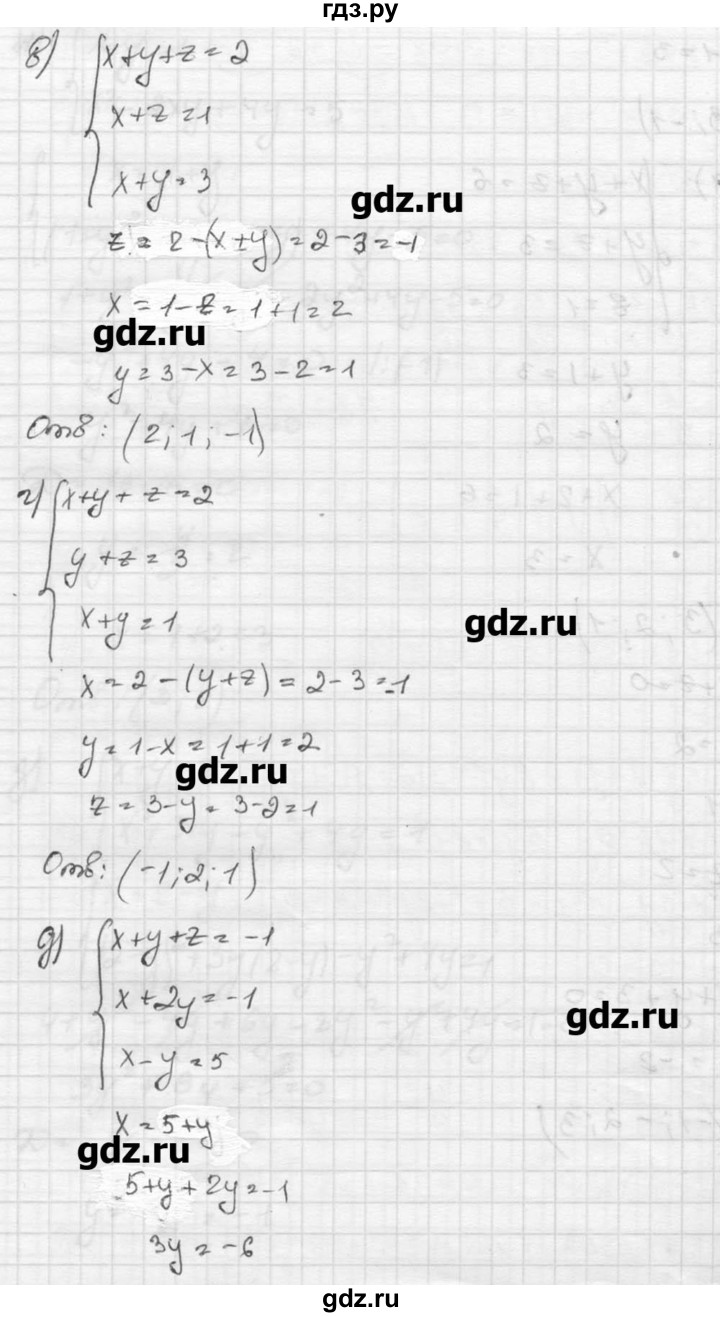 гдз.ру
в) x+y+z=2
x+z=1
x+y=3
gdz.ru
z=2-(x+y)=2-3=-1
x=1-z=1+1=2
gdz.ru
y=3-x=3-2=1
Отв: (2; 1; -1)
г) x+y+z=2
y+z=3
x+y=1
gdz.ru
x=2-(y+z)=2-3=-1
y=1-x=1+1=2
gdz.ru
z=3-y=3-2=1
Отв: (-1; 2; 1)
д) x+y+z=-1
x+2y=-1
gdz.ru
x-y=5
x=5+y
gdz.ru
5+y+2y=-1
3y=-6
gdz.ru